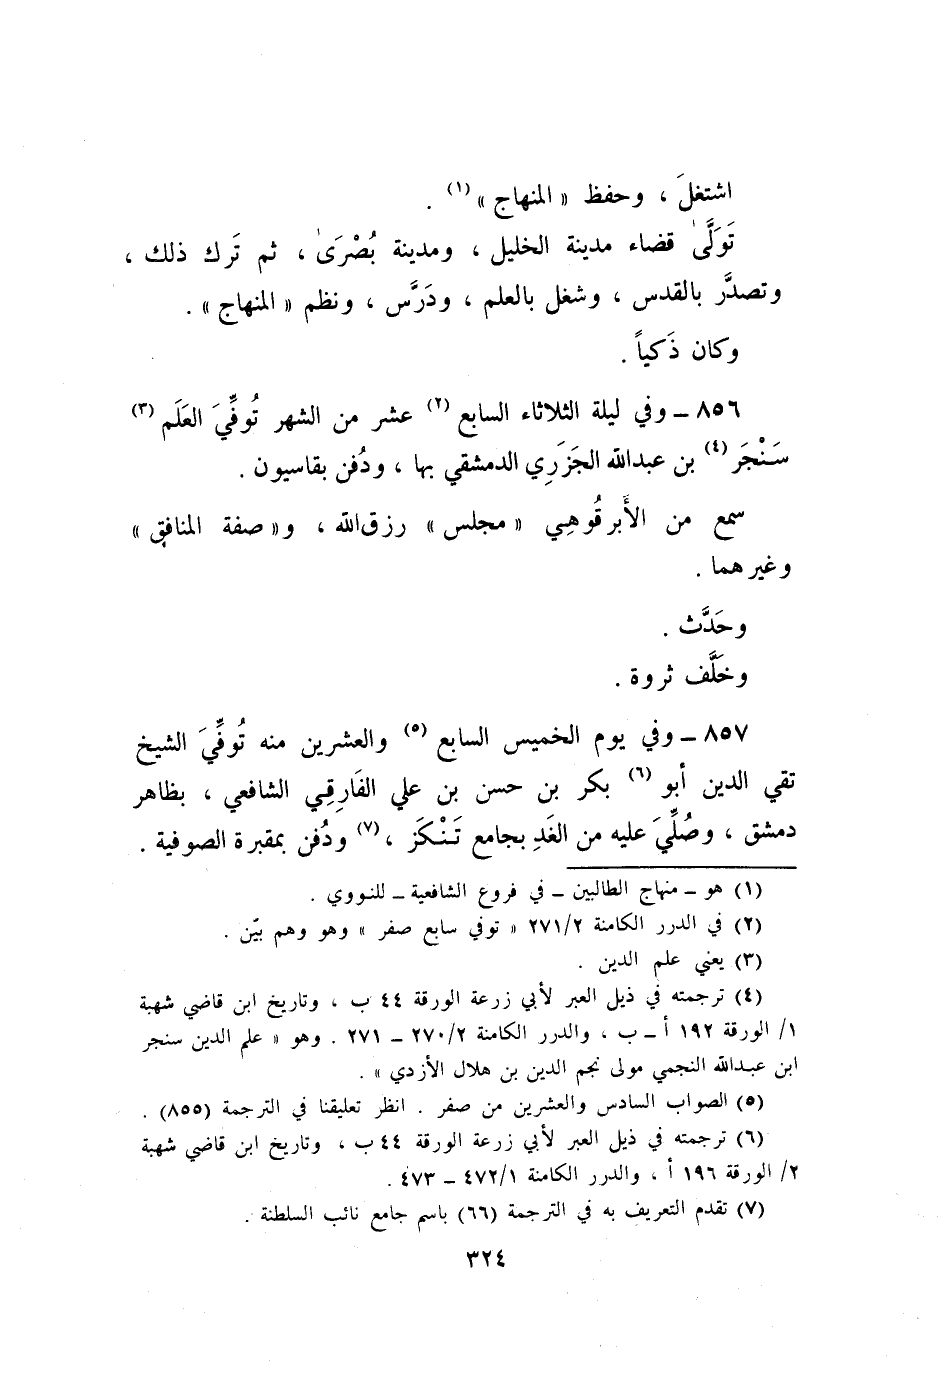 اشتغلَ ، وحفظ « المنهاج » (١) .
تَوَلَّىٰ قضاء مدينة الخليل ، ومدينة بُصْرَىٰ ، ثم تَرك ذلك ،
وتصدَّر بالقدس ، وشغل بالعلم ، ودَرَّس ، ونظم « المنهاج » .
وكان ذَكياً .
٨٥٦ ـ وفي ليلة الثلاثاء السابع (٢) عشر من الشهر تُوفِّيَ العَلَم (٣)
سَنْجَر (٤) بن عبدالله الجَزَرِي الدمشقي بها ، ودُفن بقاسيون .
سمع من الأَبرقُوهِي « مجلس » رزق‌الله ، و« صفة المنافق »
وغيرهما .
وحَدَّث .
وخَلَّف ثروة .
٨٥٧ ـ وفي يوم الخميس السابع (٥) والعشرين منه تُوفِّيَ الشيخ
تقي الدين أبو (٦) بكر بن حسن بن علي الفَارِقِي الشافعي ، بظاهر
دمشق ، وصُلِّيَ عليه من الغَدِ بجامع تَنْكَز ، (٧) ودُفن بمقبرة الصوفية .
(١) هو ـ منهاج الطالبين ـ في فروع الشافعية ـ للنووي .
(٢) في الدرر الكامنة ٢٧١/٢ « توفي سابع صفر » وهو وهم بيّن .
(٣) يعني علم الدين .
(٤) ترجمته في ذيل العبر لأبي زرعة الورقة ٤٤ ب ، وتاريخ ابن قاضي شهبة
١/ الورقة ١٩٢ أ ـ ب ، والدرر الكامنة ٢٧٠/٢ ـ ٢٧١ . وهو « علم الدين سنجر
ابن عبدالله النجمي مولى نجم الدين بن هلال الأزدي » .
(٥) الصواب السادس والعشرين من صفر . انظر تعليقنا في الترجمة (٨٥٥) .
(٦) ترجمته في ذيل العبر لأبي زرعة الورقة ٤٤ ب ، وتاريخ ابن قاضي شهبة
٢/ الورقة ١٩٦ أ ، والدرر الكامنة ٤٧٢/١ ـ ٤٧٣ .
(٧) تقدم التعريف به في الترجمة (٦٦) باسم جامع نائب السلطنة .
٣٢٤